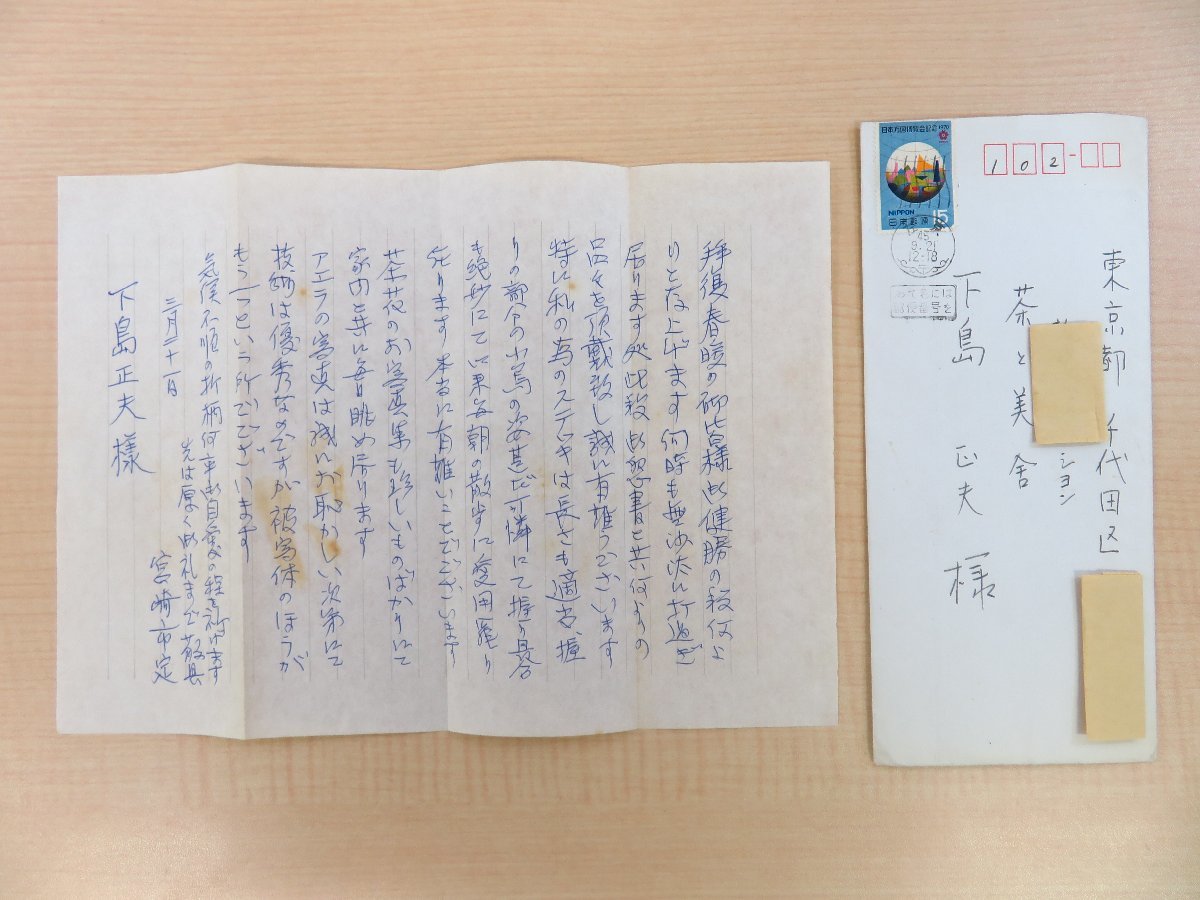 拝復 春暖の砌皆様御健勝の段何よ
りと存上げます 何時も無沙汰に打過ぎ
居ります処此般御懇書と共何よりの
品々を頂戴致し誠に有難うございます
特に私の為のステッキは長さも適当、握
りの部分の小鳥の姿甚だ可憐にて握り具合
も絶妙にて以来毎朝の散歩に愛用罷り
在ります 本当に有難いことでございます
茶花のお写真集も珍しいものばかりにて
家内と共に毎日眺め居ります
アエラの写真は誠にお恥かしい次第にて
技術は優秀なのですが被写体のほうが
もう一つという所でございます
気候不順の折柄何卒御自愛の程を祈ります
先は厚く御礼まで 敬具
三月二十一日
宮崎市定
下島正夫様
日本万国博覧会記念 1970
NIPPON
15
日本郵便
45
9.21
12-18
あて名には
郵便番号を
102
東京都千代田区
ション
茶と美舎
下島正夫様